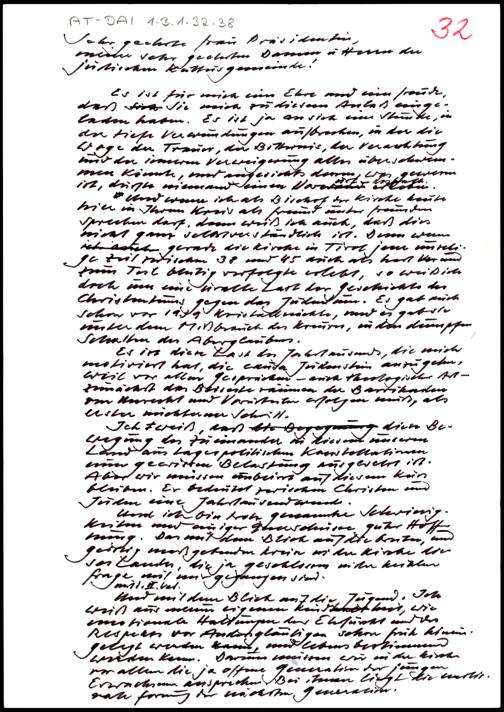 AT-DAI 1.3.1.32.38
32
Sehr geehrte Frau Präsidentin,
meine sehr geehrten Damen u Herren der
jüdischen Kultusgemeinde!
Es ist für mich eine Ehre und eine Freude,
daß Sie mich zu diesem Anlaß einge-
laden haben. Es ist ja an sich eine Stunde, in
der tiefe Verwundungen aufbrechen, in der die
Woge der Trauer, der Bitternis, der Verachtung
und der inneren Verweigerung alles überschwem-
men könnte, und angesichts dessen, was gewesen
ist, dürfte niemand einen
Und wenn ich als Bischof der Kirche heute
hier in Ihrem Kreis als Freund unter Freunden
sprechen darf, dann weiß ich auch, daß dies
nicht ganz selbstverständlich ist. Denn wenn
gerade die Kirche in Tirol jene unseli-
ge Zeit zwischen 38 und 45 auch als hart und
zum Teil blutig verfolgte erlebt, so weiß ich
doch um eine uralte Last der Geschichte des
Christentums gegen das Judentum. Es gab auch
schon vor 1938 Kristallnächte, und es gab sie
unter dem Mißbrauch des Kreuzes, in den dumpfen
Schatten des Aberglaubens.
Es ist diese Last des Jahrtausends, die mich
motiviert hat, die causa Judenstein anzugehen,
weil vor allen Gesprächen – auch theologischer Art –
zunächst das Beiseiteräumen der Barrikaden
von Unrecht und Vorurteilen erfolgen muß, als
erster nüchterner Schritt.
Ich weiß, daß die Begegnung diese Be-
wegung des Zueinander in diesem unserem
Land aus tagespolitischen Konstellationen
einer gewissen Belastung ausgesetzt ist.
Aber wir müssen unbeirrt auf diesem Kurs
bleiben. Er bedeutet zwischen Christen und
Juden eine Jahrtausendwende.
Und ich bin trotz genannter Schwierig-
keiten und einiger guter Hoff-
nung. Das mit dem Blick auf die breiten, und
geistig maßgebenden Kreise in der Kirche die-
ses Landes, die ja geschlossen in der heiklen
Frage mit mir gegangen sind.
Und mit dem Blick auf die Jugend. Ich
weiß aus meiner eigenen Kindheit, wie
emotionale Haltungen der Ehrfurcht und des
Respekts vor Andersgläubigen schon früh hinein-
gelegt werden und lebensbestimmend
werden können. Darum müssen wir in der Kirche
vor allem die ja offene Generation der jungen
Erwachsenen ansprechen. Bei ihnen liegt die
Formung der nächsten Generation.